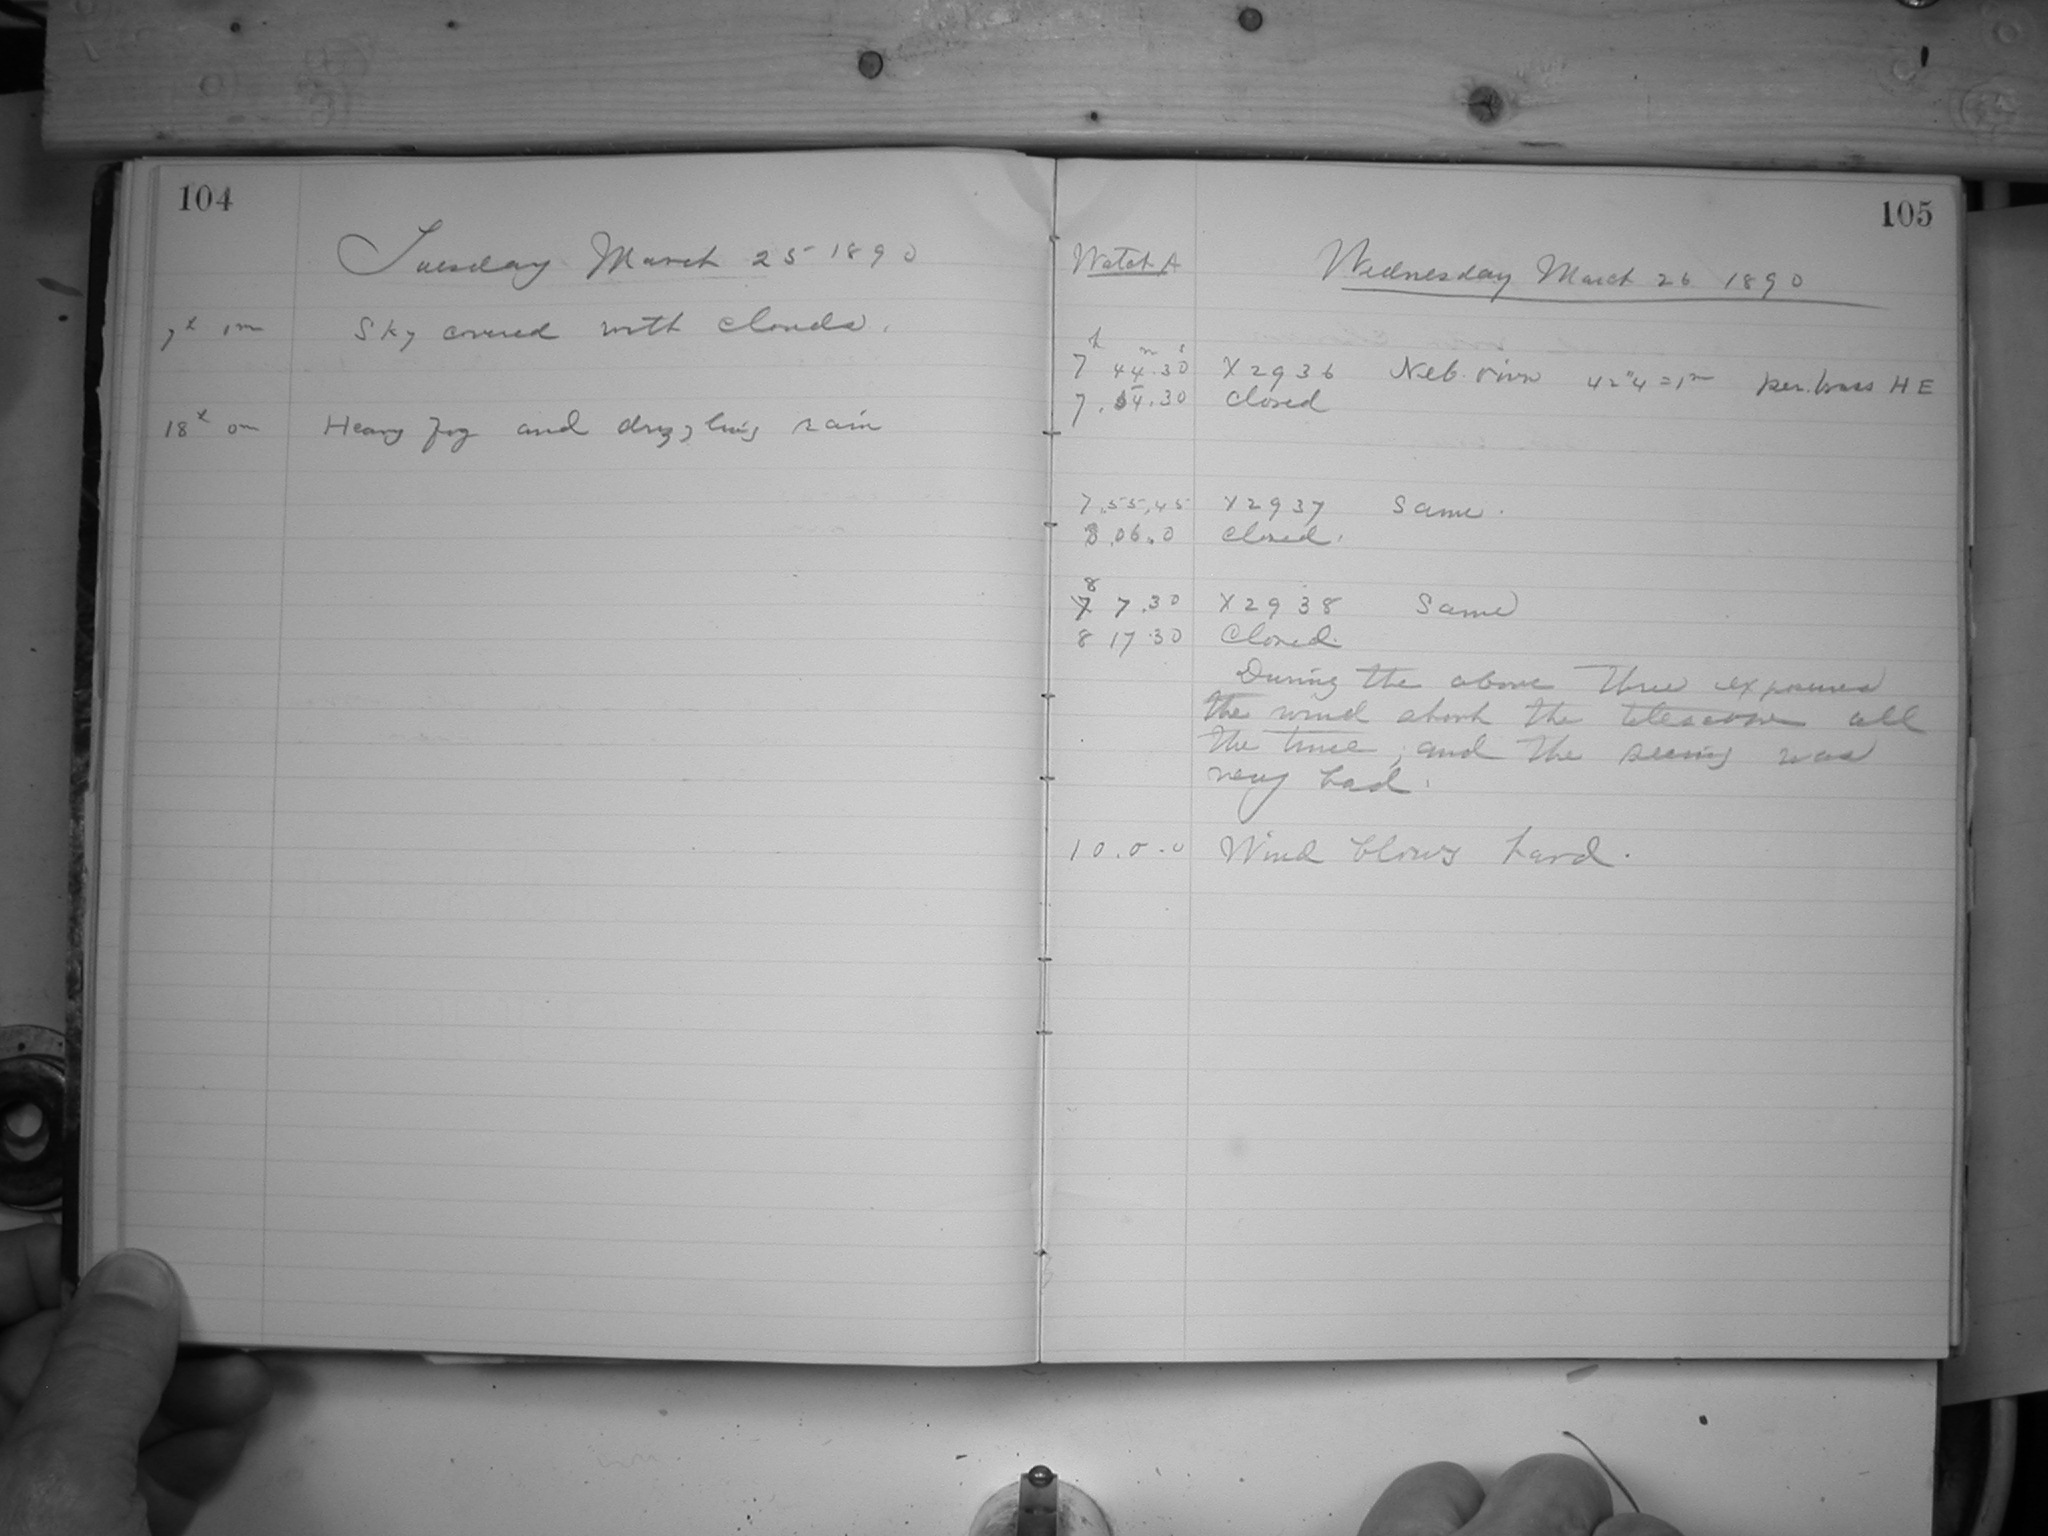 104
Tuesday March 25 1890
7h 1m Sky covered with clouds.
18h 0m Heavy fog and drizzling rain
105
Watch A Wednesday March 26 1890
h m s
7 44.30 X2936 Neb. 42"4=1m per. HE
7.54.30 closed
7.55.45 X2937 Same.
8.06.0 closed.
8
7 7.30 X2938 Same
8 17 30 Closed.
During the above three exposures
the wind shook the telescope all
the time, and the seeing was
very bad.
10.0.0 Wind blows hard.